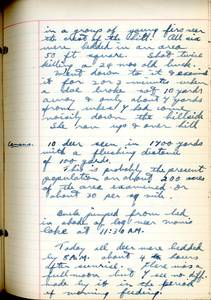 in a group of young firs near
the most of the bluff. All six
were bedded in an area
50 ft square. Shot twice
killing a 20 mos old buck.
Went down to it & around
it for 2 or 3 minutes when
a doe broke not 10 yards
away & only about 7 yards
from where I had come
noisily down the hillside
She ran up & over hill
Census. 10 deer seen in 1700 yards
with a flushing distance
of 100 yards.
This is probably the present
population on about 200 acres
of the area examined or
about 30 per sq mile.
Buck jumped from bed
in shade of log near
slope at 11:30 AM.
Today all deer were bedded
by 8 AM. about 2 hours
after sunrise. There was a
full moon but I see no diff.
made by it in the period
of morning feeding.